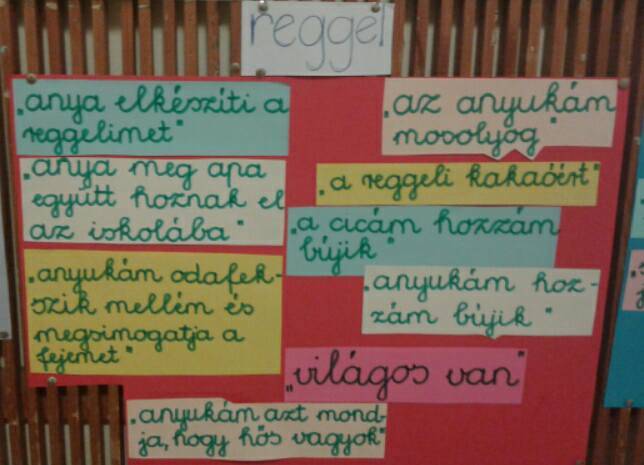 reggel
„anya elkészíti a
reggelimet"
„anya meg apa
együtt hoznak el
az iskolába"
„anyukám odafek-
szik mellém és
megsimogatja a
fejemet"
„az anyukám
mosolyog"
„a reggeli kakaóért"
„a cicám hozzám
bújik"
„anyukám hoz-
zám bújik"
„világos van"
„anyukám azt mond-
ja, hogy hős vagyok"